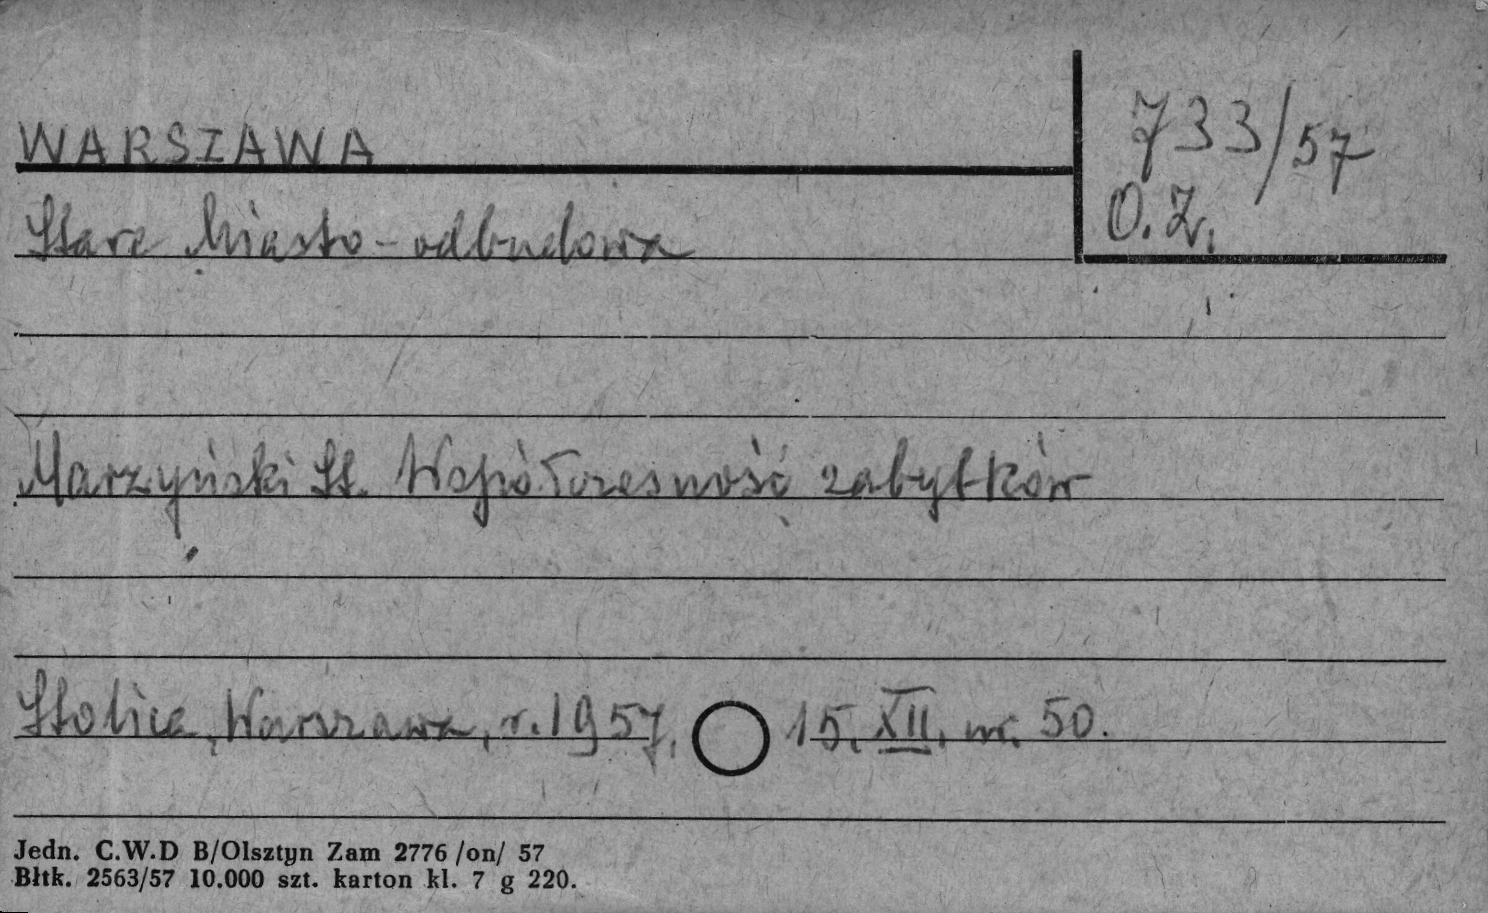 WARSZAWA
733/57
O.Z.
Stare Miasto - odbudowa
Marzyński St. Współczesność zabytków
Stolica, Warszawa, r. 1957, 15. XII. nr. 50.
Jedn. C.W.D B/Olsztyn Zam 2776 /on/ 57
Błtk. 2563/57 10.000 szt. karton kl. 7 g 220.